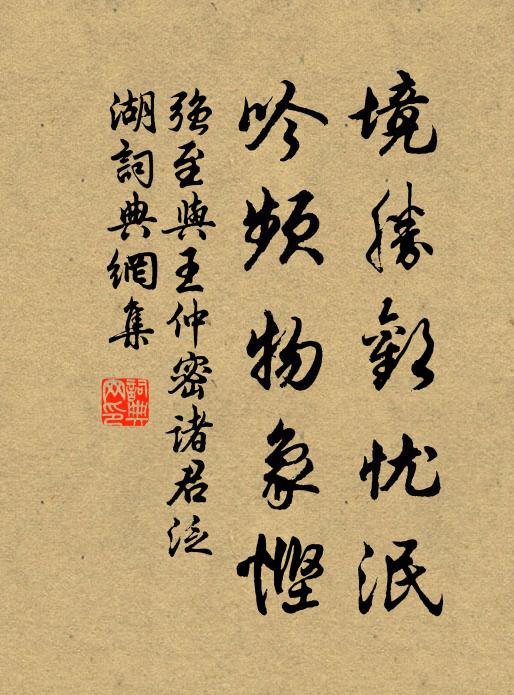 境勝歡忧泯
吟頻物象慳
強至與王仲密諸君泛
湖詞典網集
詞典